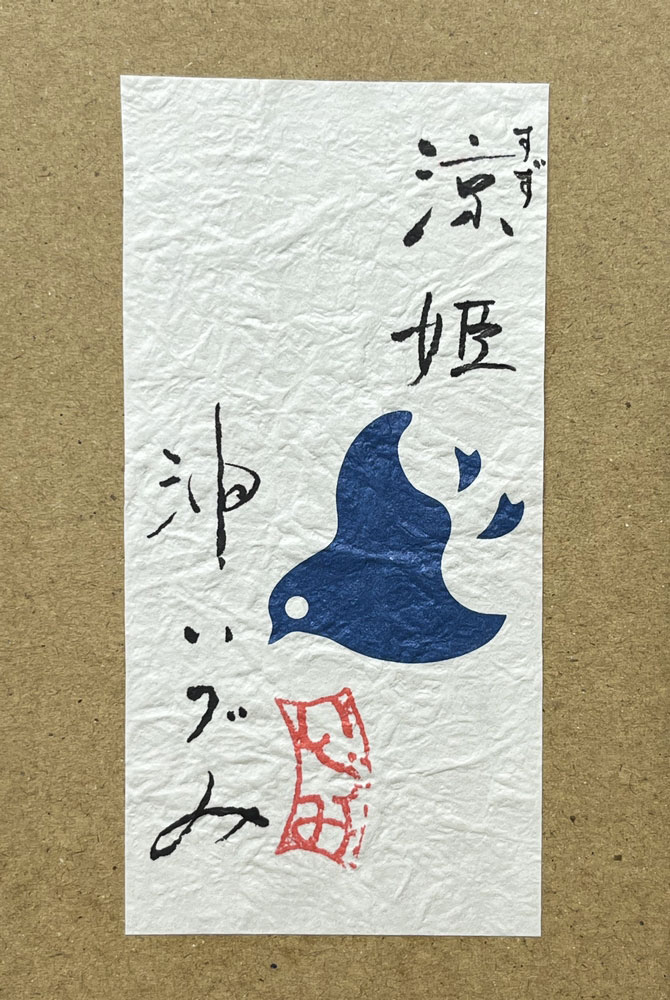 涼姫
すず
沖いづみ